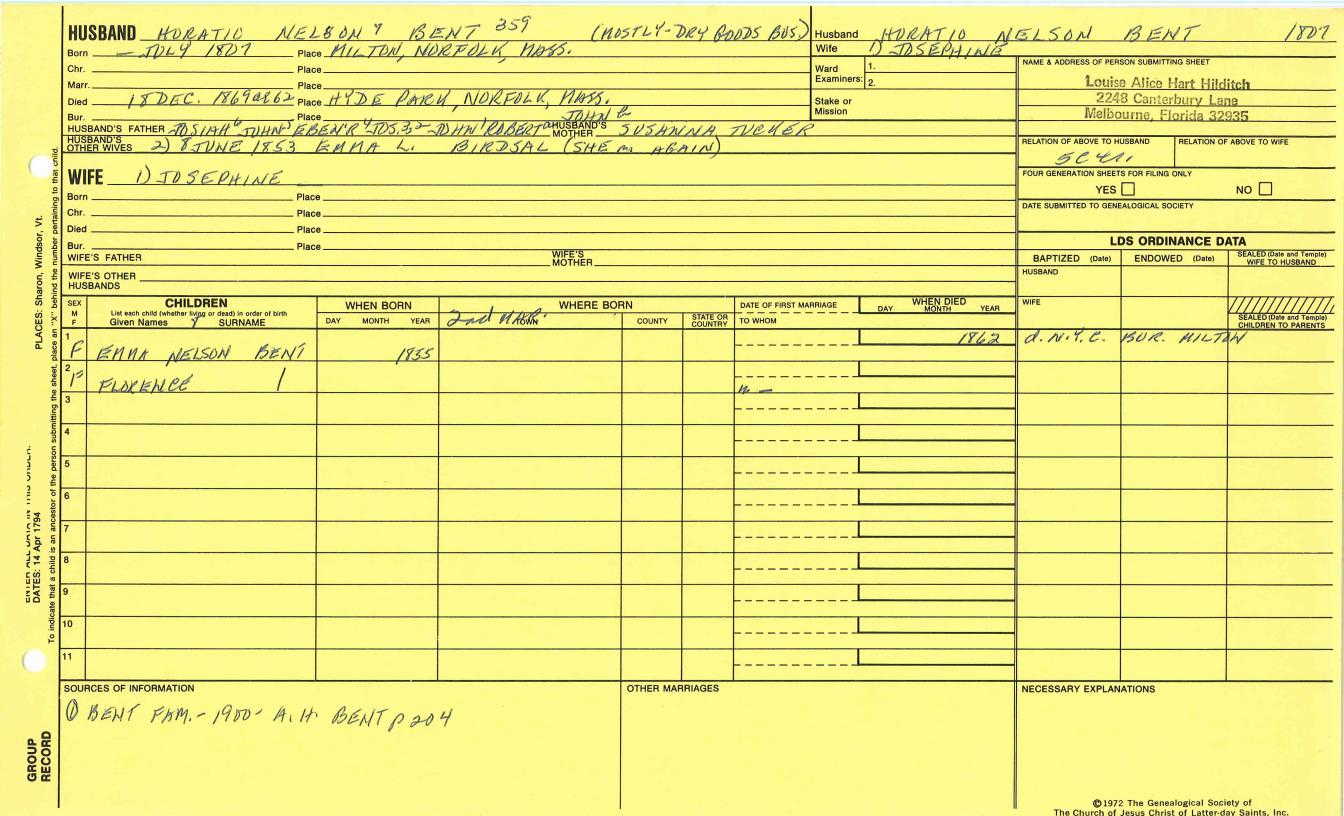 HUSBAND HORATIO NELSON 7 BENT 359 (MOSTLY-DRY GOODS BUS.)
Born — JULY 1807 Place MILTON, NORFOLK, MASS.
Chr. Place
Marr. Place
Died 18 DEC. 1869 or 62 Place HYDE PARK, NORFOLK, MASS.
Bur. Place
HUSBAND'S FATHER JOSIAH 6 JOHN 5 EBEN'R 4 JOS. 3 JOHN 2 JOHN 1 ROBERT HUSBAND'S MOTHER SUSANNA TUCKER
HUSBAND'S OTHER WIVES 2) 8 JUNE 1853 EMMA L. BIRDSAL (SHE m. AGAIN)
WIFE 1) JOSEPHINE
Born Place
Chr. Place
Died Place
Bur. Place
WIFE'S FATHER WIFE'S MOTHER
WIFE'S OTHER HUSBANDS
Husband HORATIO NELSON BENT 1807
Wife 1) JOSEPHINE
Ward Examiners: 1.
2.
Stake or Mission
NAME & ADDRESS OF PERSON SUBMITTING SHEET
Louise Alice Hart Hilditch
2248 Canterbury Lane
Melbourne, Florida 32935
RELATION OF ABOVE TO HUSBAND RELATION OF ABOVE TO WIFE
FOUR GENERATION SHEETS FOR FILING ONLY
YES NO
DATE SUBMITTED TO GENEALOGICAL SOCIETY
LDS ORDINANCE DATA
BAPTIZED (Date) ENDOWED (Date) SEALED (Date and Temple) WIFE TO HUSBAND
HUSBAND
WIFE
SEALED (Date and Temple) CHILDREN TO PARENTS
SEX M F
CHILDREN
List each child (whether living or dead) in order of birth
Given Names SURNAME
WHEN BORN
DAY MONTH YEAR
WHERE BORN
2nd MAR.
TOWN COUNTY STATE OR COUNTRY
DATE OF FIRST MARRIAGE
TO WHOM
WHEN DIED
DAY MONTH YEAR
1 F EMMA NELSON BENT 1855 1862 d. N.Y.C. BUR. MILTON
2 F FLORENCE m —
3
4
5
6
7
8
9
10
11
SOURCES OF INFORMATION
① BENT FAM.- 1900- A.H. BENT p 204
OTHER MARRIAGES
NECESSARY EXPLANATIONS
©1972 The Genealogical Society of
The Church of Jesus Christ of Latter-day Saints, Inc.
PLACES: Sharon, Windsor, Vt.
ENTER ALL DATA IN THIS ORDER:
DATES: 14 Apr 1794
To indicate that a child is an ancestor of the person submitting the sheet, place an "X" behind the number pertaining to that child.
GROUP
RECORD